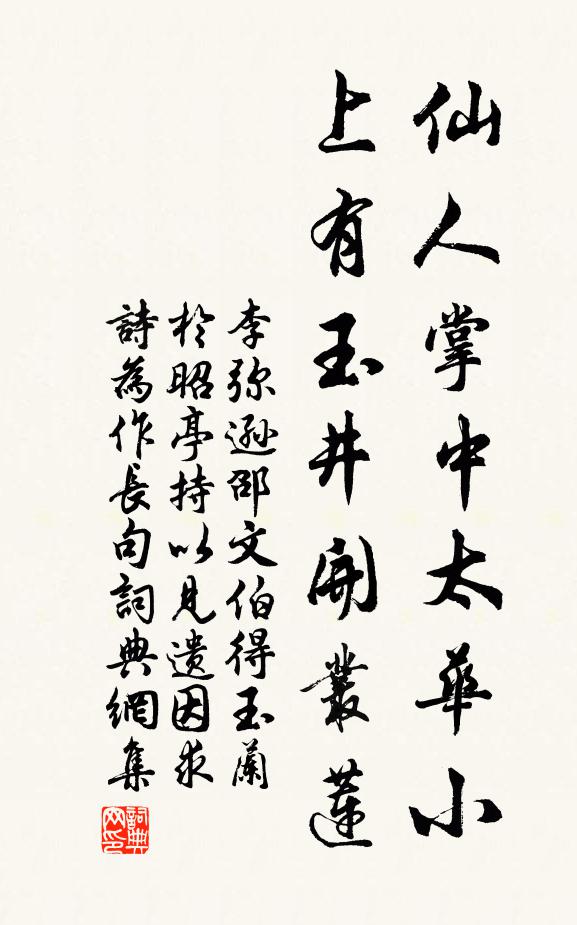 仙人掌中太華小
上有玉井開叢蓮
李弥遜邵文伯得玉蘭
於昭亭持以見遗因求
詩為作長句詞典網集
詞典网印